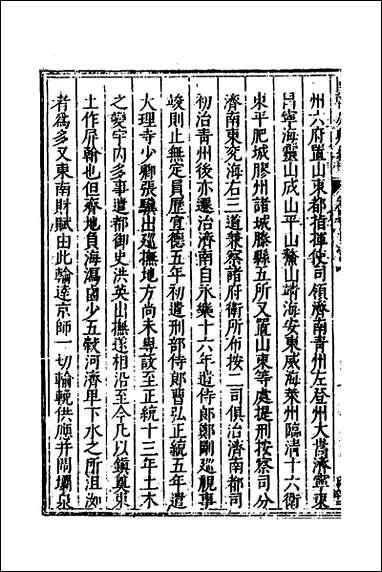 州六府置山東都指揮使司領濟南青州左登州大嵩濟寧東
昌寧海靈山成山平山鰲山靖海安東威海萊州臨清十六衛
東平肥城膠州諸城滕縣五所又置山東等處提刑按察司分
濟南東兖海右三道兼察諸府衛所布按二司俱治濟南都司
初治青州後亦遷治濟南自永樂十六年遣侍郎鄭剛巡視事
竣則止無定員歷宣德五年初遣刑部侍郎曹弘正統五年遣
大理寺少卿張驥出巡撫地方尚未專設至正統十三年土木
之變宇内多事遣都御史洪英出撫遂相沿至今凢以鎮奠東
土作屏翰也但齊地負海潟鹵少五穀河濟卑下水之所沮洳
者爲多又東南財賦由此輸達京師一切輸輓供應并閘壩泉